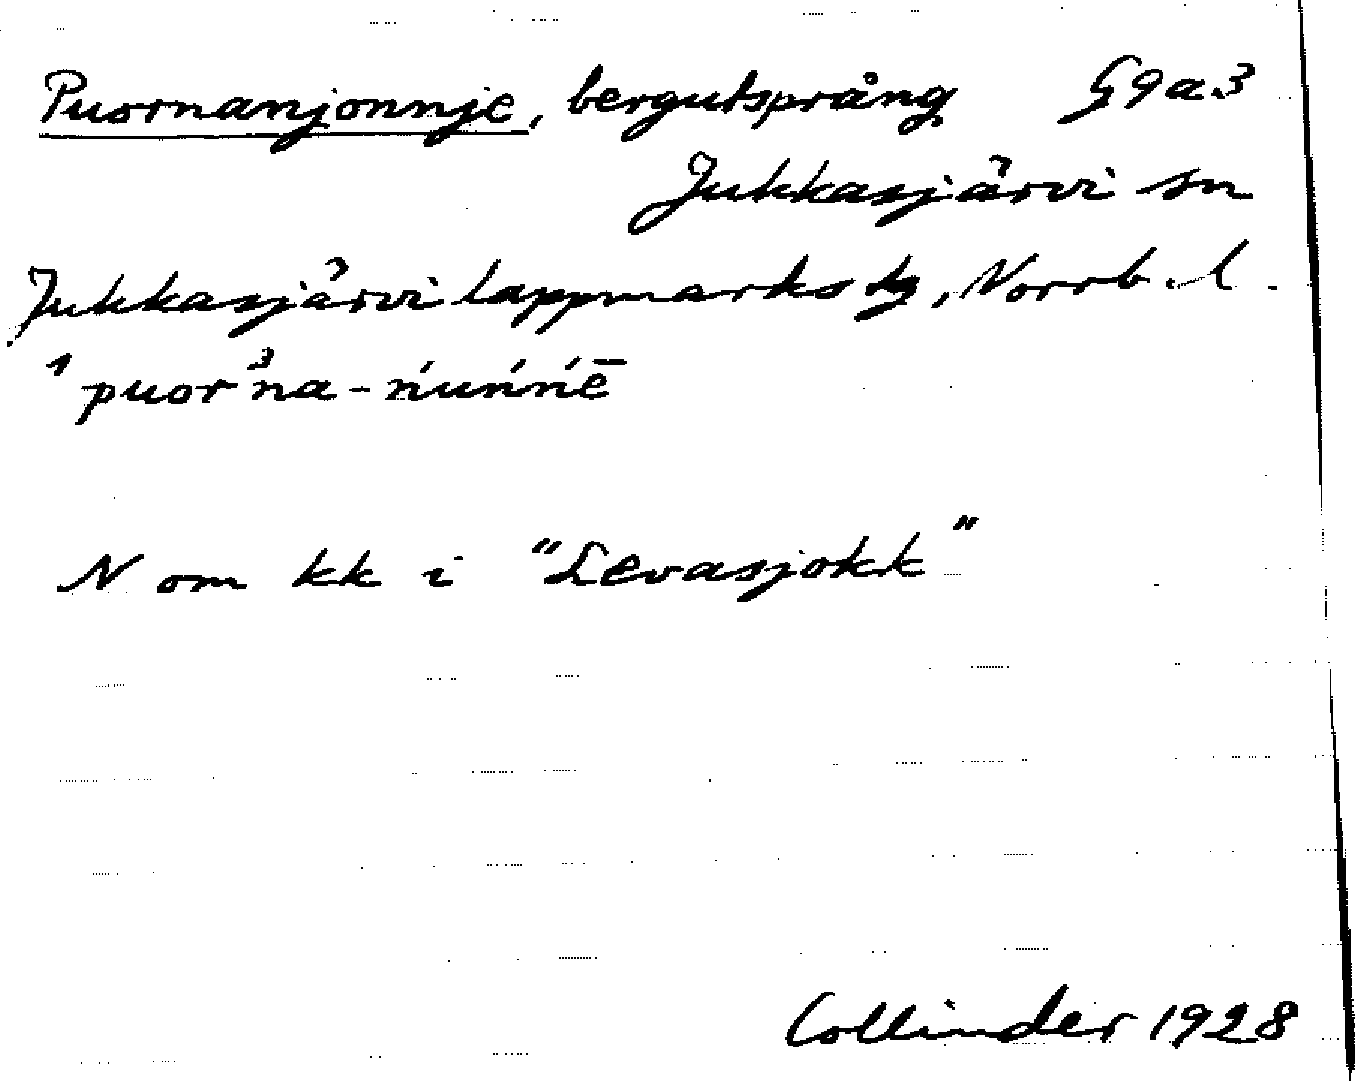 Puornanjonnje, bergutsprång G9a3
Jukkasjärvi sn
Jukkasjärvi lappmarks tg, Norrb. l.
¹puor³na-ńuńńē
N om kk i "Levasjokk"
Collinder 1928